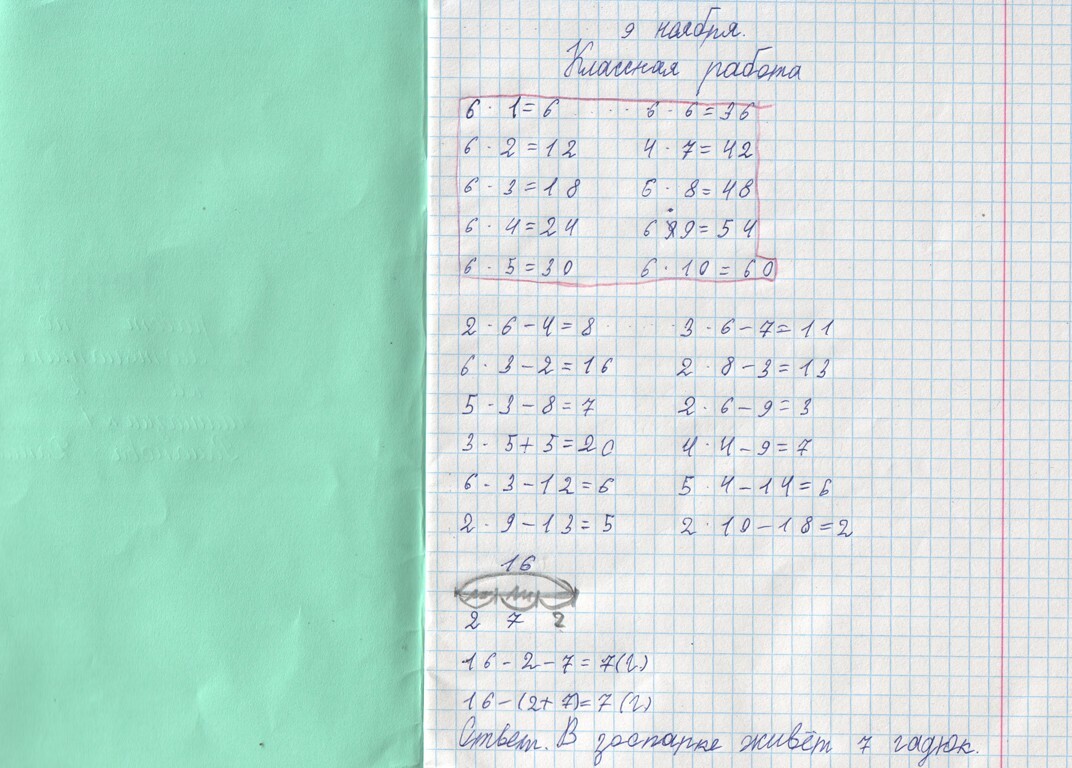 9 ноября.
Классная работа
6 · 1 = 6 . . . . 6 · 6 = 36
6 · 2 = 12 4 · 7 = 42
6 · 3 = 18 6 · 8 = 48
6 · 4 = 24 6 · 9 = 54
6 · 5 = 30 6 · 10 = 60
2 · 6 - 4 = 8 . . . . 3 · 6 - 7 = 11
6 · 3 - 2 = 16 2 · 8 - 3 = 13
5 · 3 - 8 = 7 2 · 6 - 9 = 3
3 · 5 + 5 = 20 4 · 4 - 9 = 7
6 · 3 - 12 = 6 5 · 4 - 14 = 6
2 · 9 - 13 = 5 2 · 10 - 18 = 2
16
2 7 ?
16 - 2 - 7 = 7 (г)
16 - (2 + 7) = 7 (г)
Ответ. В зоопарке живёт 7 гадюк.